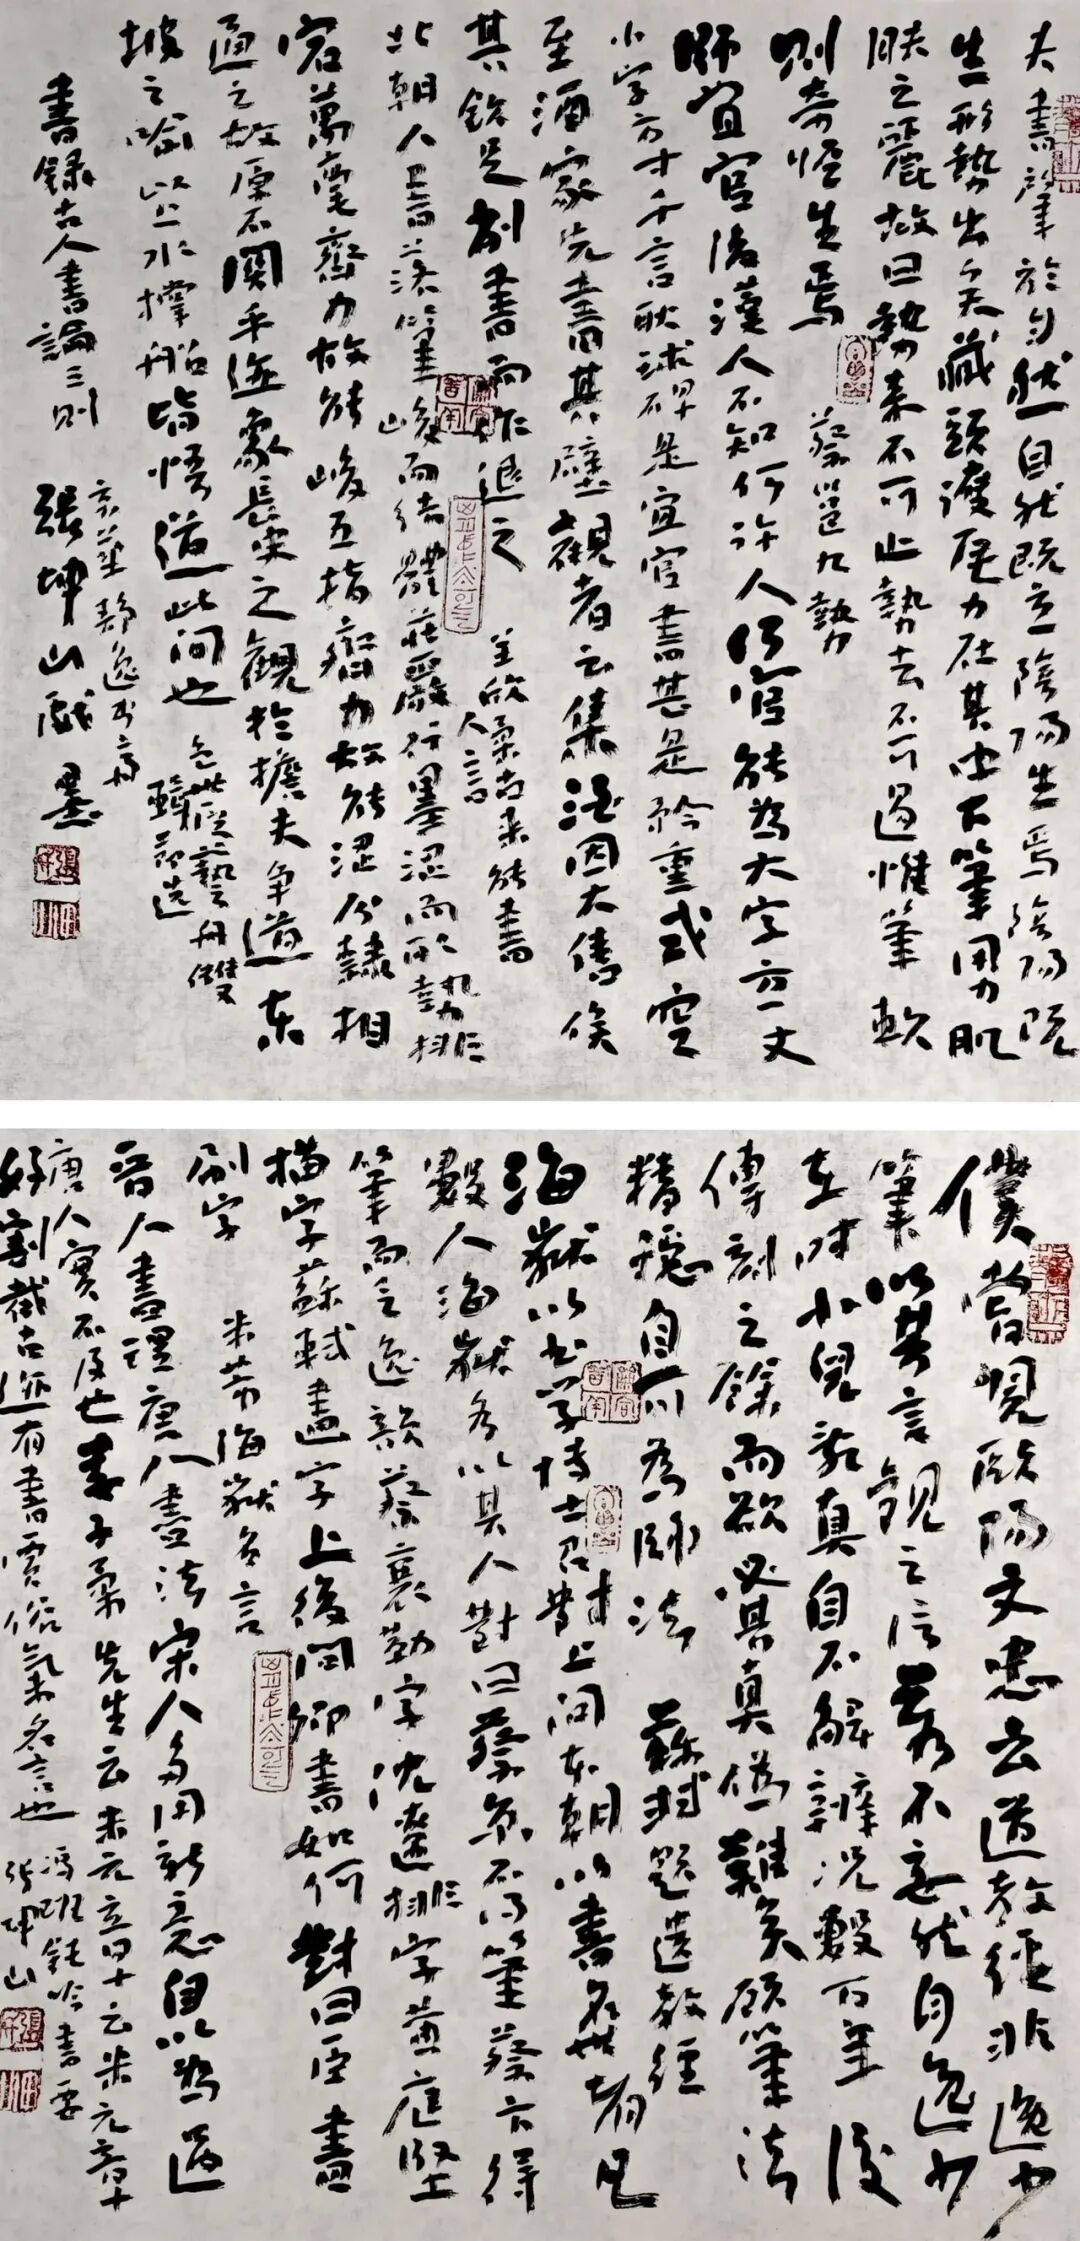 夫書肇於自然自然既立陰陽生焉陰陽既
生形勢出矣藏頭護尾力在其中下筆用力肌
膚之麗故曰勢來不可止勢去不可遏惟筆軟
則奇怪生焉
蔡邕九勢
師宜官後漢人不知何許人何官能為大字方一丈
小字方寸千言耿球碑是宜官書甚是矜重或空
至酒家先書其壁觀者云集酒因大售俟
其飲足削書而退之
羊欣采古來能書
人言
北朝人書落筆峻而結體莊嚴行墨澀而取勢排
宕萬毫齊力故能峻五指齊力故能澀分隸相
通之故原不關乎迹象長史之觀於擔夫爭道東
坡之喻上水撐船皆悟道此间也
包世臣藝舟雙
楫節选
書錄古人書論三則
张坤山戲墨
僕嘗見歐陽文忠云遺教經非逸少
筆以其言觀之信若不妄然自逸少
在時小兒亂真自不解辨況數百年後
傳刻之餘而欲必其真偽難矣顧筆法
精穩自可為師法
蘇軾題遺教經
海嶽以書學博士召對上問本朝以書名世者凡
數人海嶽各以其人對曰蔡京不得筆蔡卞得
筆而乏逸韻蔡襄勒字沈遼排字黄庭堅
描字蘇軾畫字上復问卿書如何對曰臣書
刷字
米芾海嶽名言
晉人盡理唐人盡法宋人多用新意自以為過
唐人實不及也婁子柔先生云米元章
好割截古迹有書賈俗氣名言也
冯班鈍吟書要
张坤山